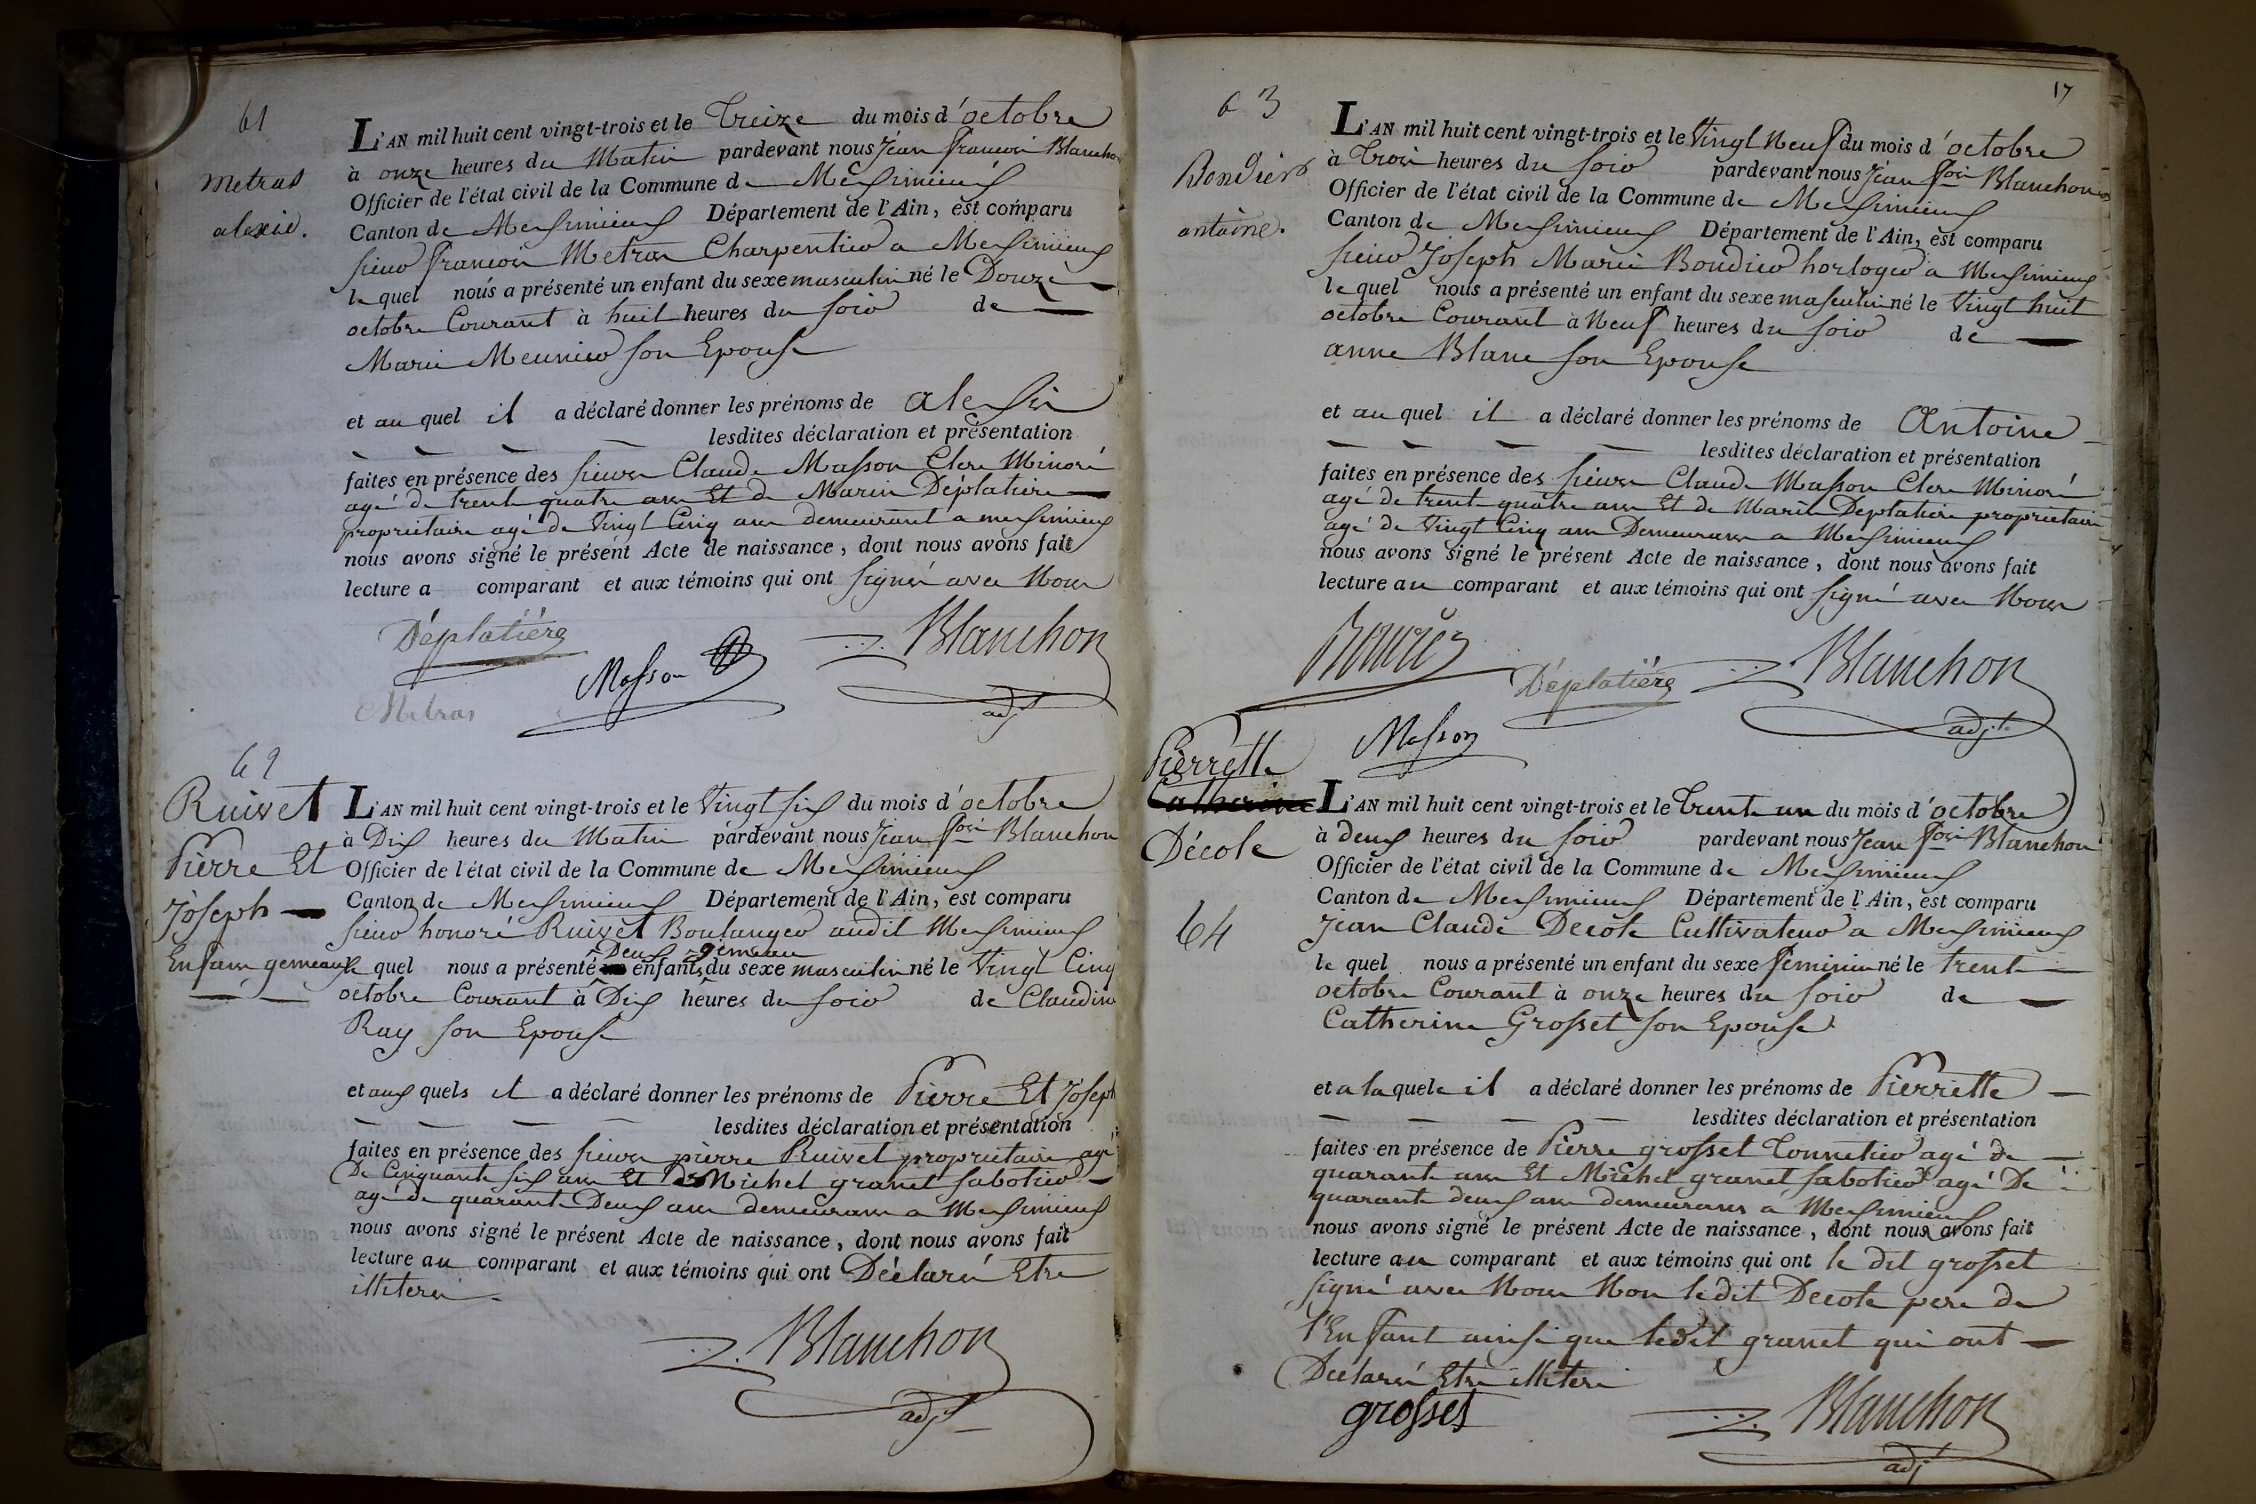 61
Metras
alexis.
L'AN mil huit cent vingt-trois et le Treize du mois d'octobre
à onze heures du Matin pardevant nous Jean francois Blanchon
Officier de l'état civil de la Commune de Meximieux
Canton de Meximieux Département de l'Ain, est comparu
sieur francois Metras Charpentier a Meximieux
le quel nous a présenté un enfant du sexe masculin né le Douze
octobre Courant à huit heures du soir de
Marie Meunier son Epouse
et au quel il a déclaré donner les prénoms de alexis
lesdites déclaration et présentation
faites en présence des sieurs Claude Masson Clerc Minoré
agé de trente quatre ans Et de Marin Déplatiere
proprietaire agé de Vingt Cinq ans demeurant a meximieux
nous avons signé le présent Acte de naissance, dont nous avons fait
lecture a comparant et aux témoins qui ont signés avec Nous
Déplatière
Masson
Blanchon
adjt
Metras
62
Ruivet
Pierre Et
Joseph
Enfans gemeaux
L'AN mil huit cent vingt-trois et le Vingt six du mois d'octobre
à Dix heures du Matin pardevant nous Jean fcois Blanchon
Officier de l'état civil de la Commune de Meximieux
Canton de Meximieux Département de l'Ain, est comparu
sieur honoré Ruivet Boulanger audit Meximieux
Deux gémeaux
le quel nous a présenté enfants du sexe masculin né le Vingt Cinq
octobre Courant à Dix heures du soir de Claudine
Ray son Epouse
et aux quels il a déclaré donner les prénoms de Pierre Et Joseph
lesdites déclaration et présentation
faites en présence des sieurs pierre Ruivet proprietaire agé
De Cinquante six ans Et de Michel granet sabotier
agé de quarante Deux ans demeurans a Meximieux
nous avons signé le présent Acte de naissance, dont nous avons fait
lecture au comparant et aux témoins qui ont Déclarés Etre
illiterés
Blanchon
adjt
17
63
Bondier
antoine.
L'AN mil huit cent vingt-trois et le Vingt Neuf du mois d'octobre
à Trois heures du soir pardevant nous Jean fcois Blanchon
Officier de l'état civil de la Commune de Meximieux
Canton de Meximieux Département de l'Ain, est comparu
sieur Joseph Marie Bondier horloger a Meximieux
le quel nous a présenté un enfant du sexe masculin né le Vingt huit
octobre Courant à Neuf heures du soir de
anne Blanc son Epouse
et au quel il a déclaré donner les prénoms de Antoine
lesdites déclaration et présentation
faites en présence des sieurs Claude Masson Clerc Minoré
agé de trente quatre ans Et de Marin Deplatiere proprietaire
agé de Vingt Cinq ans Demeurans a Meximieux
nous avons signé le présent Acte de naissance, dont nous avons fait
lecture au comparant et aux témoins qui ont signé avec Nous
Déplatière
Blanchon
adjt.
Masson
Pierrette
Catherine
Décole
64
L'AN mil huit cent vingt-trois et le Trente un du mois d'octobre
à deux heures du soir pardevant nous Jean fcois Blanchon
Officier de l'état civil de la Commune de Meximieux
Canton de Meximieux Département de l'Ain, est comparu
Jean Claude Decole Cultivateur a Meximieux
le quel nous a présenté un enfant du sexe feminin né le trente
octobre Courant à onze heures du soir de
Catherine Grosset son Epouse
et a la quele il a déclaré donner les prénoms de Pierrette
lesdites déclaration et présentation
faites en présence de Pierre grosset Tonnelier agé de
quarante ans Et Michel granet sabotier agé De
quarante deux ans demeurans a Meximieux
nous avons signé le présent Acte de naissance, dont nous avons fait
lecture au comparant et aux témoins qui ont le dit grosset
signé avec Nous Non ledit Decole pere de
l'Enfant ainsi que ledit granet qui ont
Déclarés Etre illiteré
grosset
Blanchon
adjt